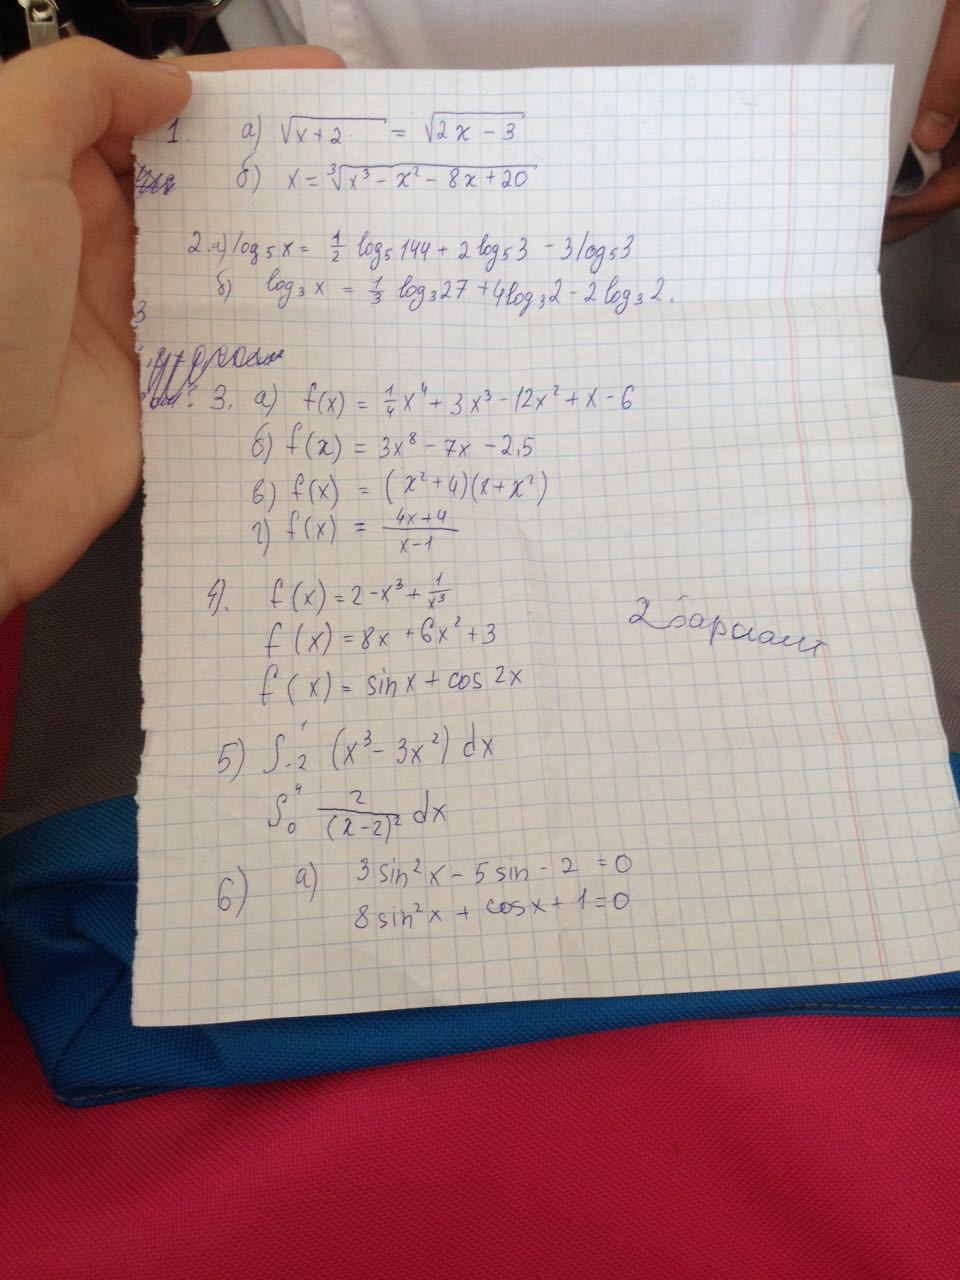 1. а) √x+2 = √2x - 3
б) x = ³√x³ - x² - 8x + 20
2.а) log₅x = 1/2 log₅144 + 2 log₅3 - 3 log₅3
б) log₃x = 1/3 log₃27 + 4log₃2 - 2 log₃2.
3
3. а) f(x) = 1/4 x⁴ + 3x³ - 12x² + x - 6
б) f(x) = 3x⁸ - 7x - 2,5
в) f(x) = (x²+4)(x+x²)
г) f(x) = 4x+4/x-1
4). f(x) = 2 - x³ + 1/x³
f(x) = 8x + 6x² + 3
2 вариант
f(x) = sin x + cos 2x
5) ∫₋₂¹ (x³ - 3x²) dx
∫₀⁴ 2/(x-2)² dx
6) а) 3 sin²x - 5 sin - 2 = 0
8 sin²x + cosx + 1 = 0